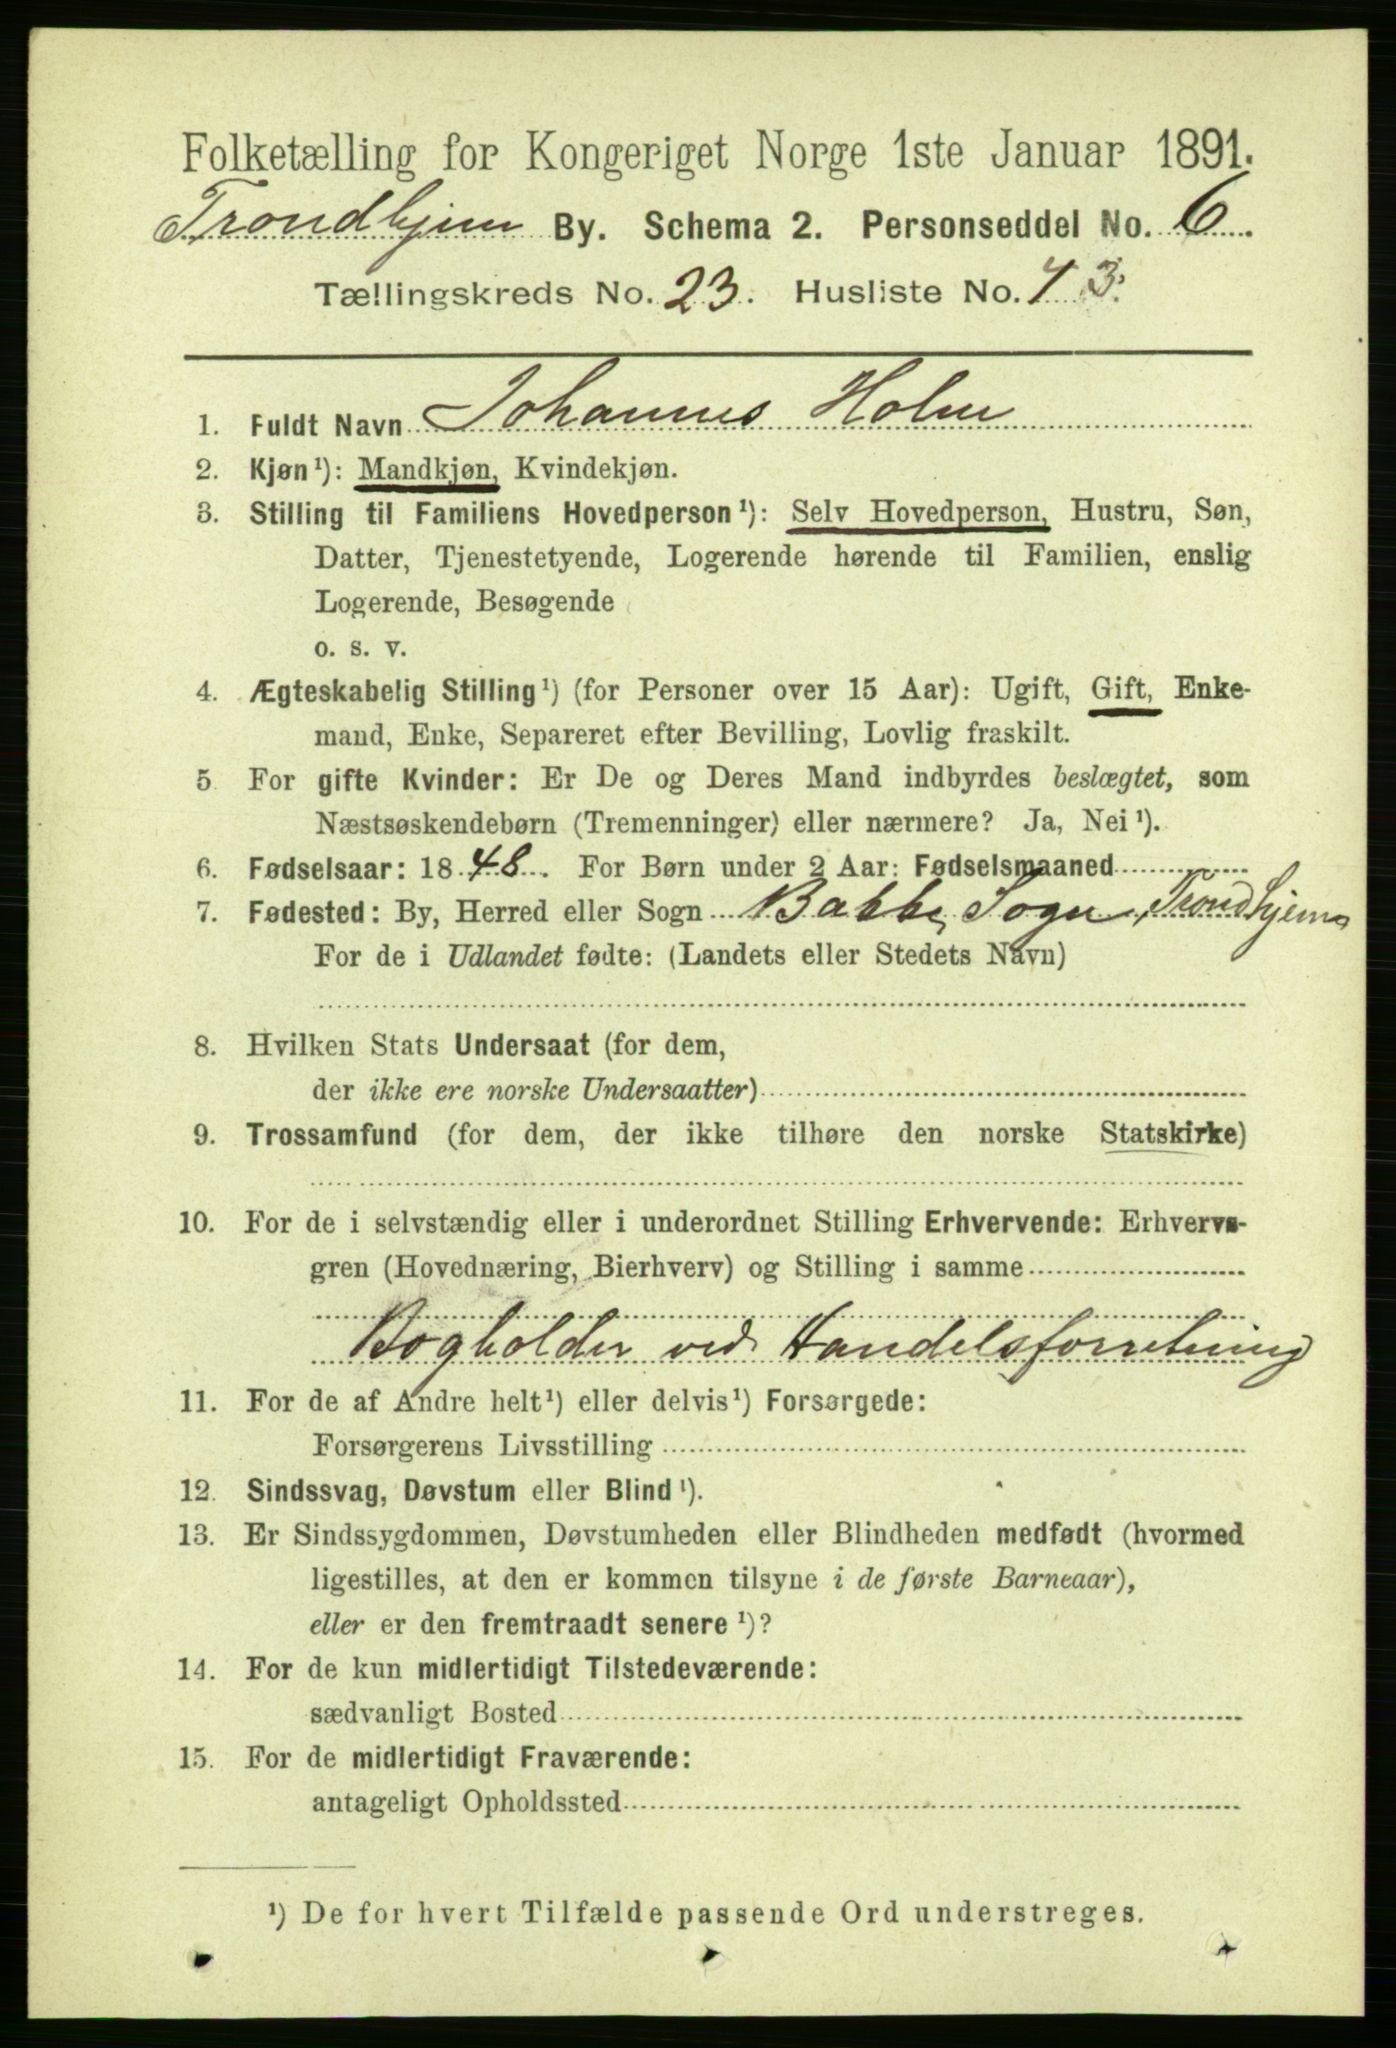 Folketælling for Kongeriget Norge 1ste Januar 1891.
Trondhjem By. Schema 2. Personseddel No. 6.
Tællingskreds No. 23. Husliste No. 43.
1. Fuldt Navn Johannes Holm
2. Kjøn¹): Mandkjøn, Kvindekjøn.
3. Stilling til Familiens Hovedperson¹): Selv Hovedperson, Hustru, Søn,
Datter, Tjenestetyende, Logerende hørende til Familien, enslig
Logerende, Besøgende
o. s. v.
4. Ægteskabelig Stilling¹) (for Personer over 15 Aar): Ugift, Gift, Enke-
mand, Enke, Separeret efter Bevilling, Lovlig fraskilt.
5 For gifte Kvinder: Er De og Deres Mand indbyrdes beslægtet, som
Næstsøskendebørn (Tremenninger) eller nærmere? Ja, Nei¹).
6. Fødselsaar: 1848. For Børn under 2 Aar: Fødselsmaaned
7. Fødested: By, Herred eller Sogn Bakke Sogn, Trondhjem
For de i Udlandet fødte: (Landets eller Stedets Navn)
8. Hvilken Stats Undersaat (for dem,
der ikke ere norske Undersaatter)
9. Trossamfund (for dem, der ikke tilhøre den norske Statskirke)
10. For de i selvstændig eller i underordnet Stilling Erhvervende: Erhvervs-
gren (Hovednæring, Bierhverv) og Stilling i samme
Bogholder ved Handelsforretning
11. For de af Andre helt¹) eller delvis¹) Forsørgede:
Forsørgerens Livsstilling
12. Sindssvag, Døvstum eller Blind¹).
13. Er Sindssygdommen, Døvstumheden eller Blindheden medfødt (hvormed
ligestilles, at den er kommen tilsyne i de første Barneaar),
eller er den fremtraadt senere¹)?
14. For de kun midlertidigt Tilstedeværende:
sædvanligt Bosted
15. For de midlertidigt Fraværende:
antageligt Opholdssted
¹) De for hvert Tilfælde passende Ord understreges.